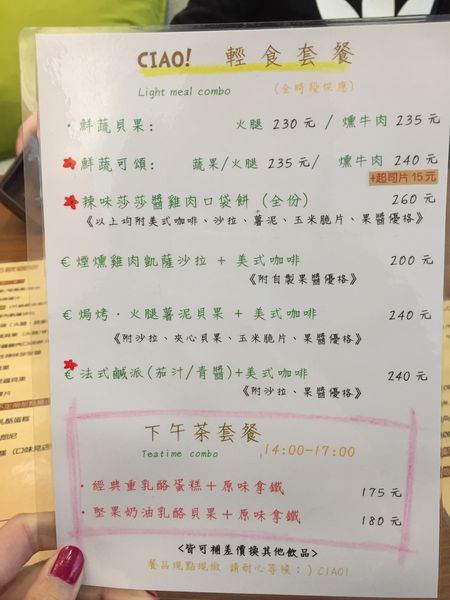 CIAO! 輕食套餐
Light meal combo (全時段供應)
·鮮蔬貝果: 火腿 230 元 / 燻牛肉 235 元
鮮蔬可頌: 蔬果/火腿 235 元/ 燻牛肉 240 元
+起司片 15 元
辣味莎莎醬雞肉口袋餅 (全份) 260 元
《以上均附美式咖啡、沙拉、薯泥、玉米脆片、果醬優格》
€ 煙燻雞肉凱薩沙拉 + 美式咖啡 200 元
《附自製果醬優格》
€ 焗烤·火腿薯泥貝果 + 美式咖啡 240 元
《附沙拉、夾心貝果、玉米脆片、果醬優格》
€ 法式鹹派(茄汁/青醬)+美式咖啡 240 元
《附沙拉、果醬優格》
下午茶套餐
Teatime combo 14:00-17:00
·經典重乳酪蛋糕+原味拿鐵 175 元
·堅果奶油乳酪貝果+原味拿鐵 180 元
<皆可補差價換其他飲品>
餐品現點現做 請耐心等候:)CIAO!